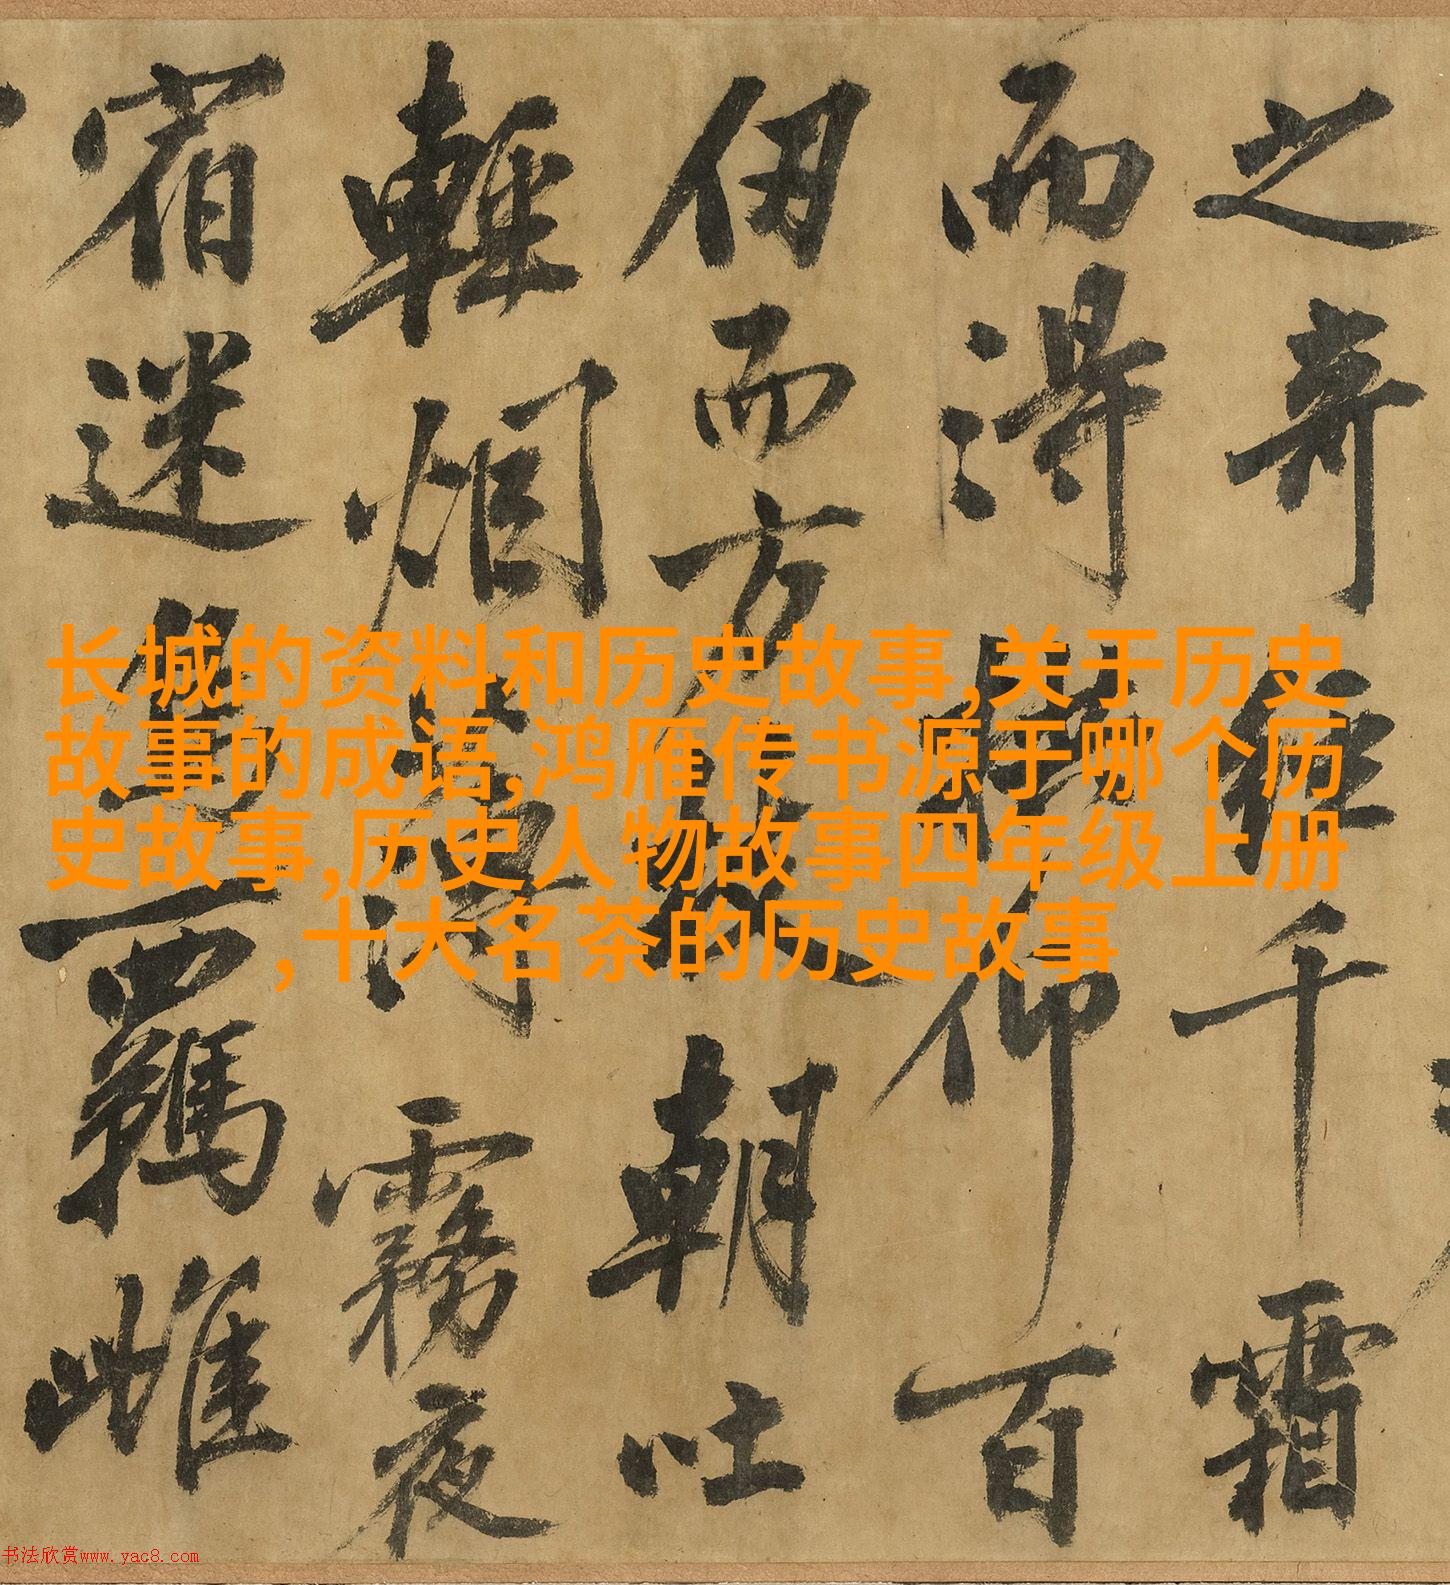 长城的资料和历史故事,关于历史
故事的成语,鸿雁传书源于哪个历
史故事,历史人物故事四年级上册
,十大名茶的历史故事
之奇經千霜
而得拱仰百
仞而方枝朝吐
輕烟薄霧夜
宿迷鳥羈雌
书法欣赏www.yac8.com